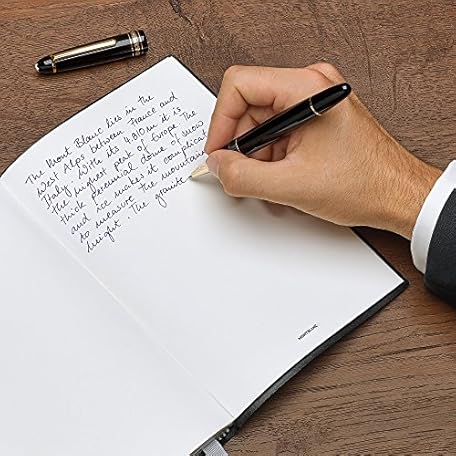 The Mont Blanc lies in the
West Alps between France and
Italy. With its 4.810 m it is
the highest peak of Europe. The
thick perennial dome of snow
and ice makes it complicat
to measure the mountains
height.. The granite
MONTBLANC